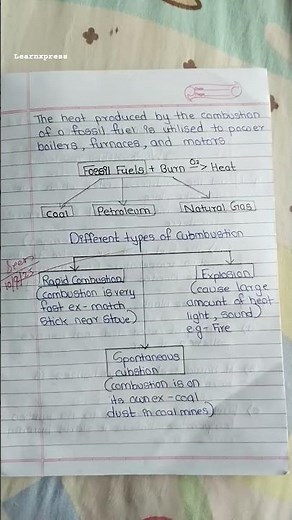 Learnxpress
The heat produced by the combustion
of a fossil fuel is utilised to power
boilers, furnaces, and motors
Fossil Fuels + Burn O2 -> Heat
Coal Petroleum Natural Gas
Different types of Cubmbustion
Rapid Combustion
(combustion is very
fast ex-match
stick near stove)
Explosion
(cause large
amount of heat
light, sound)
eg- Fire
Spontaneous
cubstion
(combustion is on
its own ex-coal
dust in coal mines)